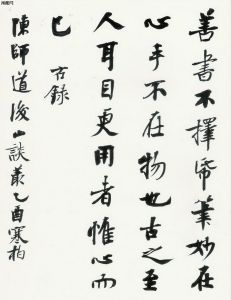 善書不擇帋筆妙在
心手不在物也古之至
人耳目更用者惟心而
已 古錄
陳師道後山談叢乙酉寒